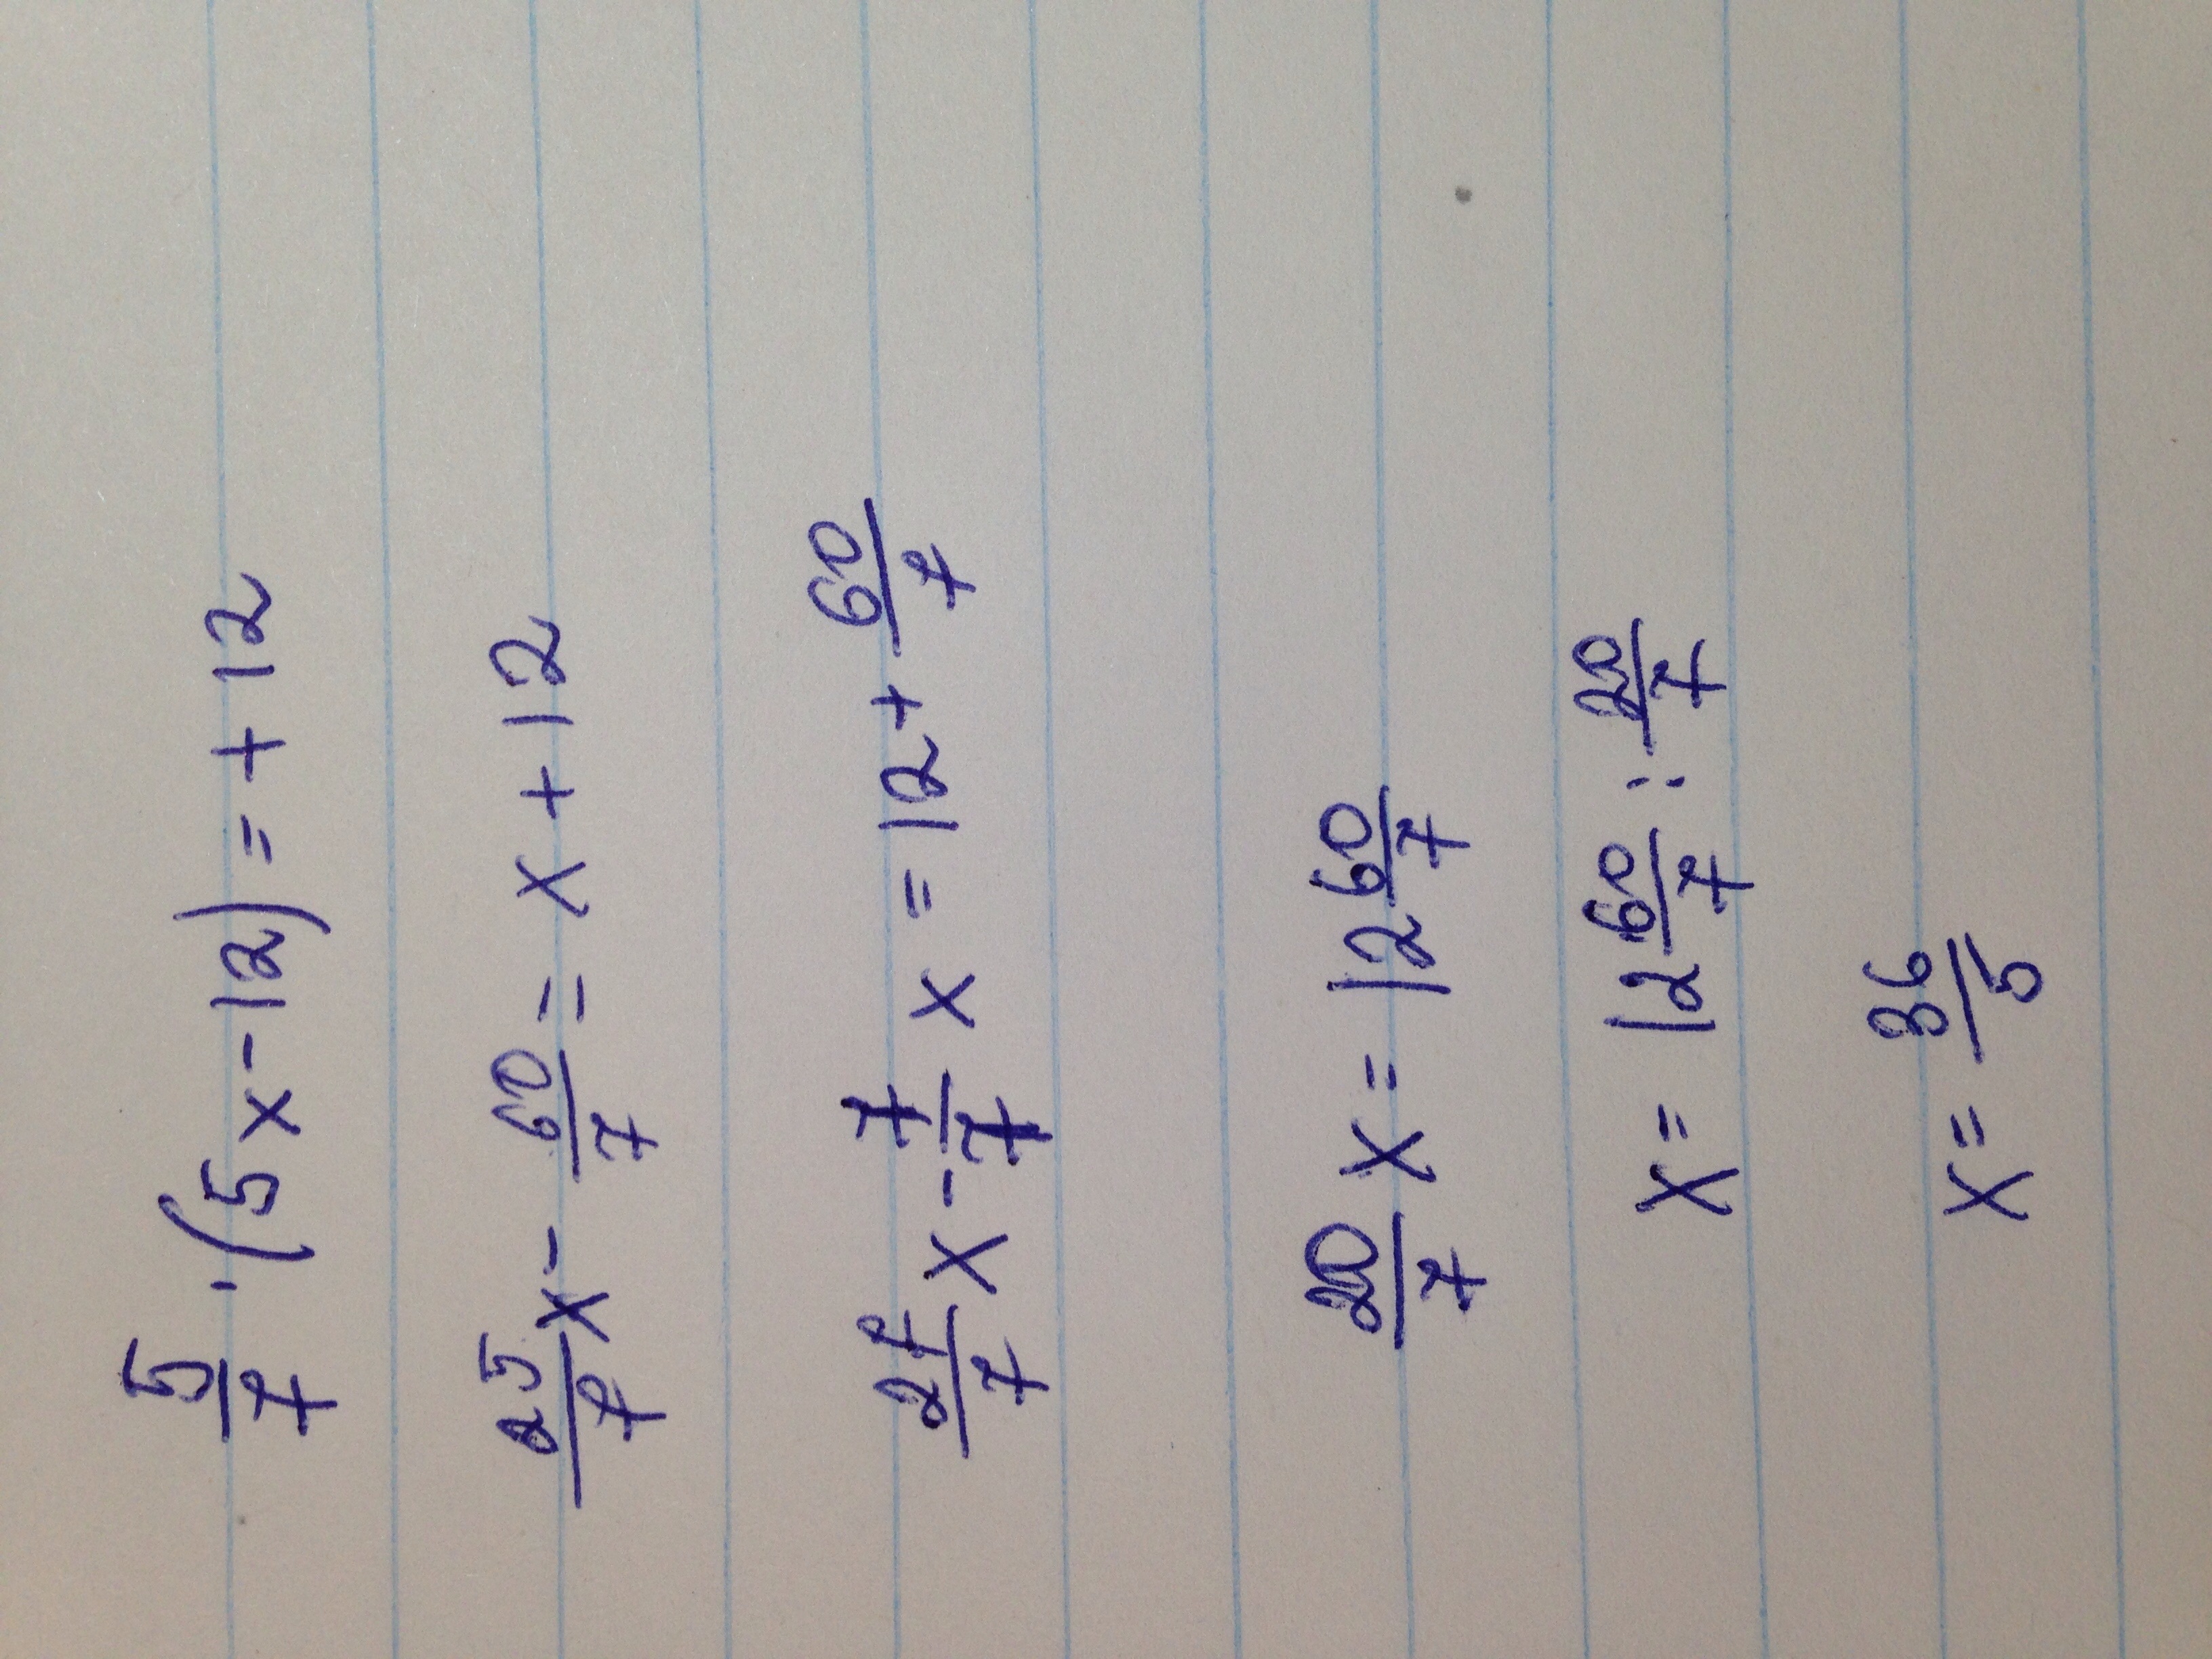 5/7 · (5x - 12) = + 12
25/7 x - 60/7 = x + 12
27/7 x - 7/7 x = 12 + 60/7
20/7 x = 12 60/7
x = 12 60/7 : 20/7
x = 36/5